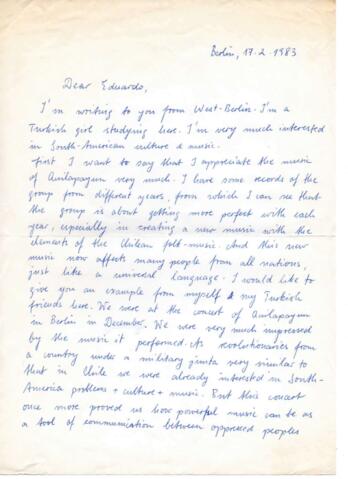 Berlin, 17.2.1983
Dear Eduardo,
I'm writing to you from West-Berlin. I'm a
Turkish girl studying here. I'm very much interested
in South-American culture & music.
first I want to say that I appreciate the music
of Quilapayun very much. I have some records of the
group from different years, from which I can see that
the group is about getting more perfect with each
year, especially in creating a new music with the
elements of the Chilean folk-music. And this new
music now affects many people from all nations,
just like a universal language. I would like to
give you an example from myself & my Turkish
friends here. We were at the concert of Quilapayun
in Berlin in December. We were very much impressed
by the music it performed. As revolutionaries from
a country under a military junta very similar to
that in Chile we were already interested in South-
America problems + culture + music. But this concert
once more proved us how powerful music can be as
a tool of communication between oppressed peoples